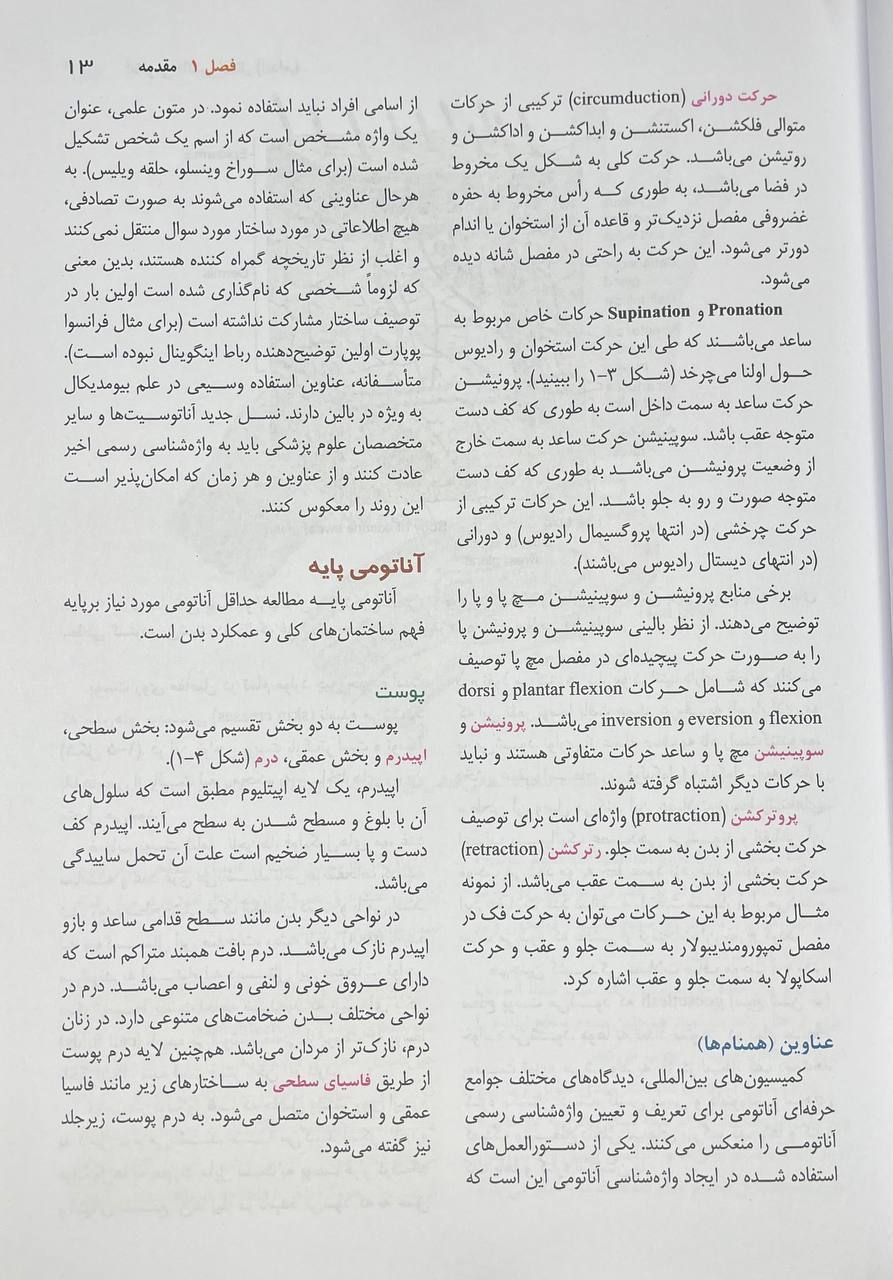 فصل ۱ مقدمه ۱۳
حرکت دورانی (circumduction) ترکیبی از حرکات
متوالی فلکشن، اکستنشن و ابداکشن و اداکشن و
روتیشن می‌باشد. حرکت کلی به شکل یک مخروط
در فضا می‌باشد، به طوری که رأس مخروط به حفره
غضروفی مفصل نزدیک‌تر و قاعده آن از استخوان یا اندام
دورتر می‌شود. این حرکت به راحتی در مفصل شانه دیده
می‌شود.
Pronation و Supination حرکات خاص مربوط به
ساعد می‌باشند که طی این حرکت استخوان و رادیوس
حول اولنا می‌چرخد (شکل ۳-۱ را ببینید). پرونیشن
حرکت ساعد به سمت داخل است به طوری که کف دست
متوجه عقب باشد. سوپینیشن حرکت ساعد به سمت خارج
از وضعیت پرونیشن می‌باشد به طوری که کف دست
متوجه صورت و رو به جلو باشد. این حرکات ترکیبی از
حرکت چرخشی (در انتها پروگسیمال رادیوس) و دورانی
(در انتهای دیستال رادیوس می‌باشند).
برخی منابع پرونیشن و سوپینیشن مچ پا و پا را
توضیح می‌دهند. از نظر بالینی سوپینیشن و پرونیشن پا
را به صورت حرکت پیچیده‌ای در مفصل مچ پا توصیف
می‌کنند که شامل حرکات plantar flexion و dorsi
flexion و eversion و inversion می‌باشد. پرونیشن و
سوپینیشن مچ پا و ساعد حرکات متفاوتی هستند و نباید
با حرکات دیگر اشتباه گرفته شوند.
پروترکشن (protraction) واژه‌ای است برای توصیف
حرکت بخشی از بدن به سمت جلو. رترکشن (retraction)
حرکت بخشی از بدن به سمت عقب می‌باشد. از نمونه
مثال مربوط به این حرکات می‌توان به حرکت فک در
مفصل تمپورومندیبولار به سمت جلو و عقب و حرکت
اسکاپولا به سمت جلو و عقب اشاره کرد.
عناوین (همنام‌ها)
کمیسیون‌های بین‌المللی، دیدگاه‌های مختلف جوامع
حرفه‌ای آناتومی برای تعریف و تعیین واژه‌شناسی رسمی
آناتومی را منعکس می‌کنند. یکی از دستورالعمل‌های
استفاده شده در ایجاد واژه‌شناسی آناتومی این است که
از اسامی افراد نباید استفاده نمود. در متون علمی، عنوان
یک واژه مشخص است که از اسم یک شخص تشکیل
شده است (برای مثال سوراخ وینسلو، حلقه ویلیس). به
هرحال عناوینی که استفاده می‌شوند به صورت تصادفی،
هیچ اطلاعاتی در مورد ساختار مورد سوال منتقل نمی‌کنند
و اغلب از نظر تاریخچه گمراه کننده هستند، بدین معنی
که لزوماً شخصی که نام‌گذاری شده است اولین بار در
توصیف ساختار مشارکت نداشته است (برای مثال فرانسوا
پوپارت اولین توضیح‌دهنده رباط اینگوینال نبوده است).
متأسفانه، عناوین استفاده وسیعی در علم بیومدیکال
به ویژه در بالین دارند. نسل جدید آناتوسیت‌ها و سایر
متخصصان علوم پزشکی باید به واژه‌شناسی رسمی اخیر
عادت کنند و از عناوین و هر زمان که امکان‌پذیر است
این روند را معکوس کنند.
آناتومی پایه
آناتومی پایه مطالعه حداقل آناتومی مورد نیاز برپایه
فهم ساختمان‌های کلی و عمکلرد بدن است.
پوست
پوست به دو بخش تقسیم می‌شود: بخش سطحی،
اپیدرم و بخش عمقی، درم (شکل ۴-۱).
اپیدرم، یک لایه اپیتلیوم مطبق است که سلول‌های
آن با بلوغ و مسطح شدن به سطح می‌آیند. اپیدرم کف
دست و پا بسیار ضخیم است علت آن تحمل ساییدگی
می‌باشد.
در نواحی دیگر بدن مانند سطح قدامی ساعد و بازو
اپیدرم نازک می‌باشد. درم بافت همبند متراکم است که
دارای عروق خونی و لنفی و اعصاب می‌باشد. درم در
نواحی مختلف بدن ضخامت‌های متنوعی دارد. در زنان
درم، نازک‌تر از مردان می‌باشد. هم‌چنین لایه درم پوست
از طریق فاسیای سطحی به ساختارهای زیر مانند فاسیا
عمقی و استخوان متصل می‌شود. به درم پوست، زیرجلد
نیز گفته می‌شود.